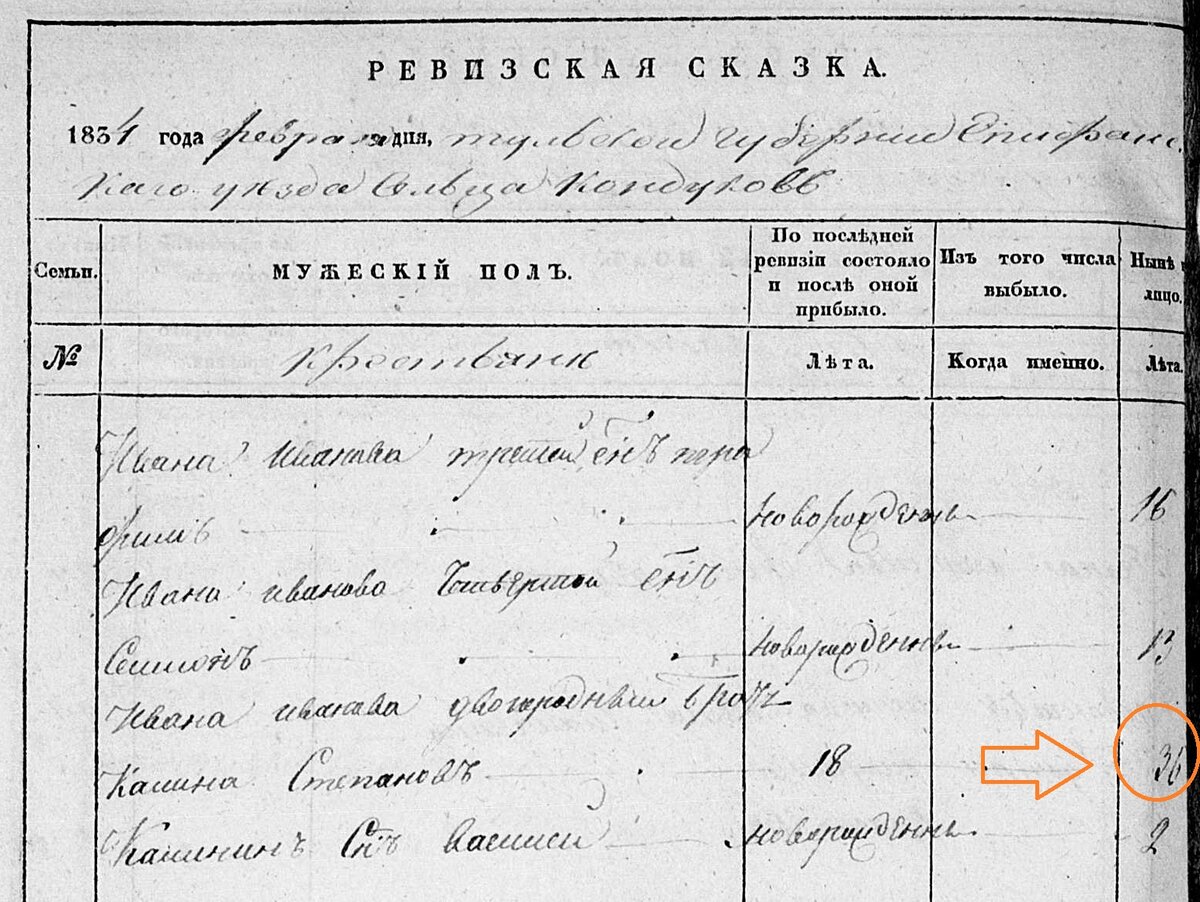 РЕВИЗСКАЯ СКАЗКА.
1834 года февраля дня, тульской губернии Епифанс
каго уезда Сельца Кондуковъ
Семьи. МУЖЕСКІЙ ПОЛЪ. По послѣдней ревизіи состояло и послѣ оной прибыло. Изъ того числа выбыло. Нынѣ лицо.
№ крестьяне Лѣта. Когда именно. Лѣта.
Ивана Иванова третий снъ пера
филъ новорожденны 16
Ивана иванова Четвертой снъ
Семионъ новорожденны 13
Ивана иванова двоюродный братъ
Калина Степановъ 18 36
Калининъ Снъ василей новорожденны 2